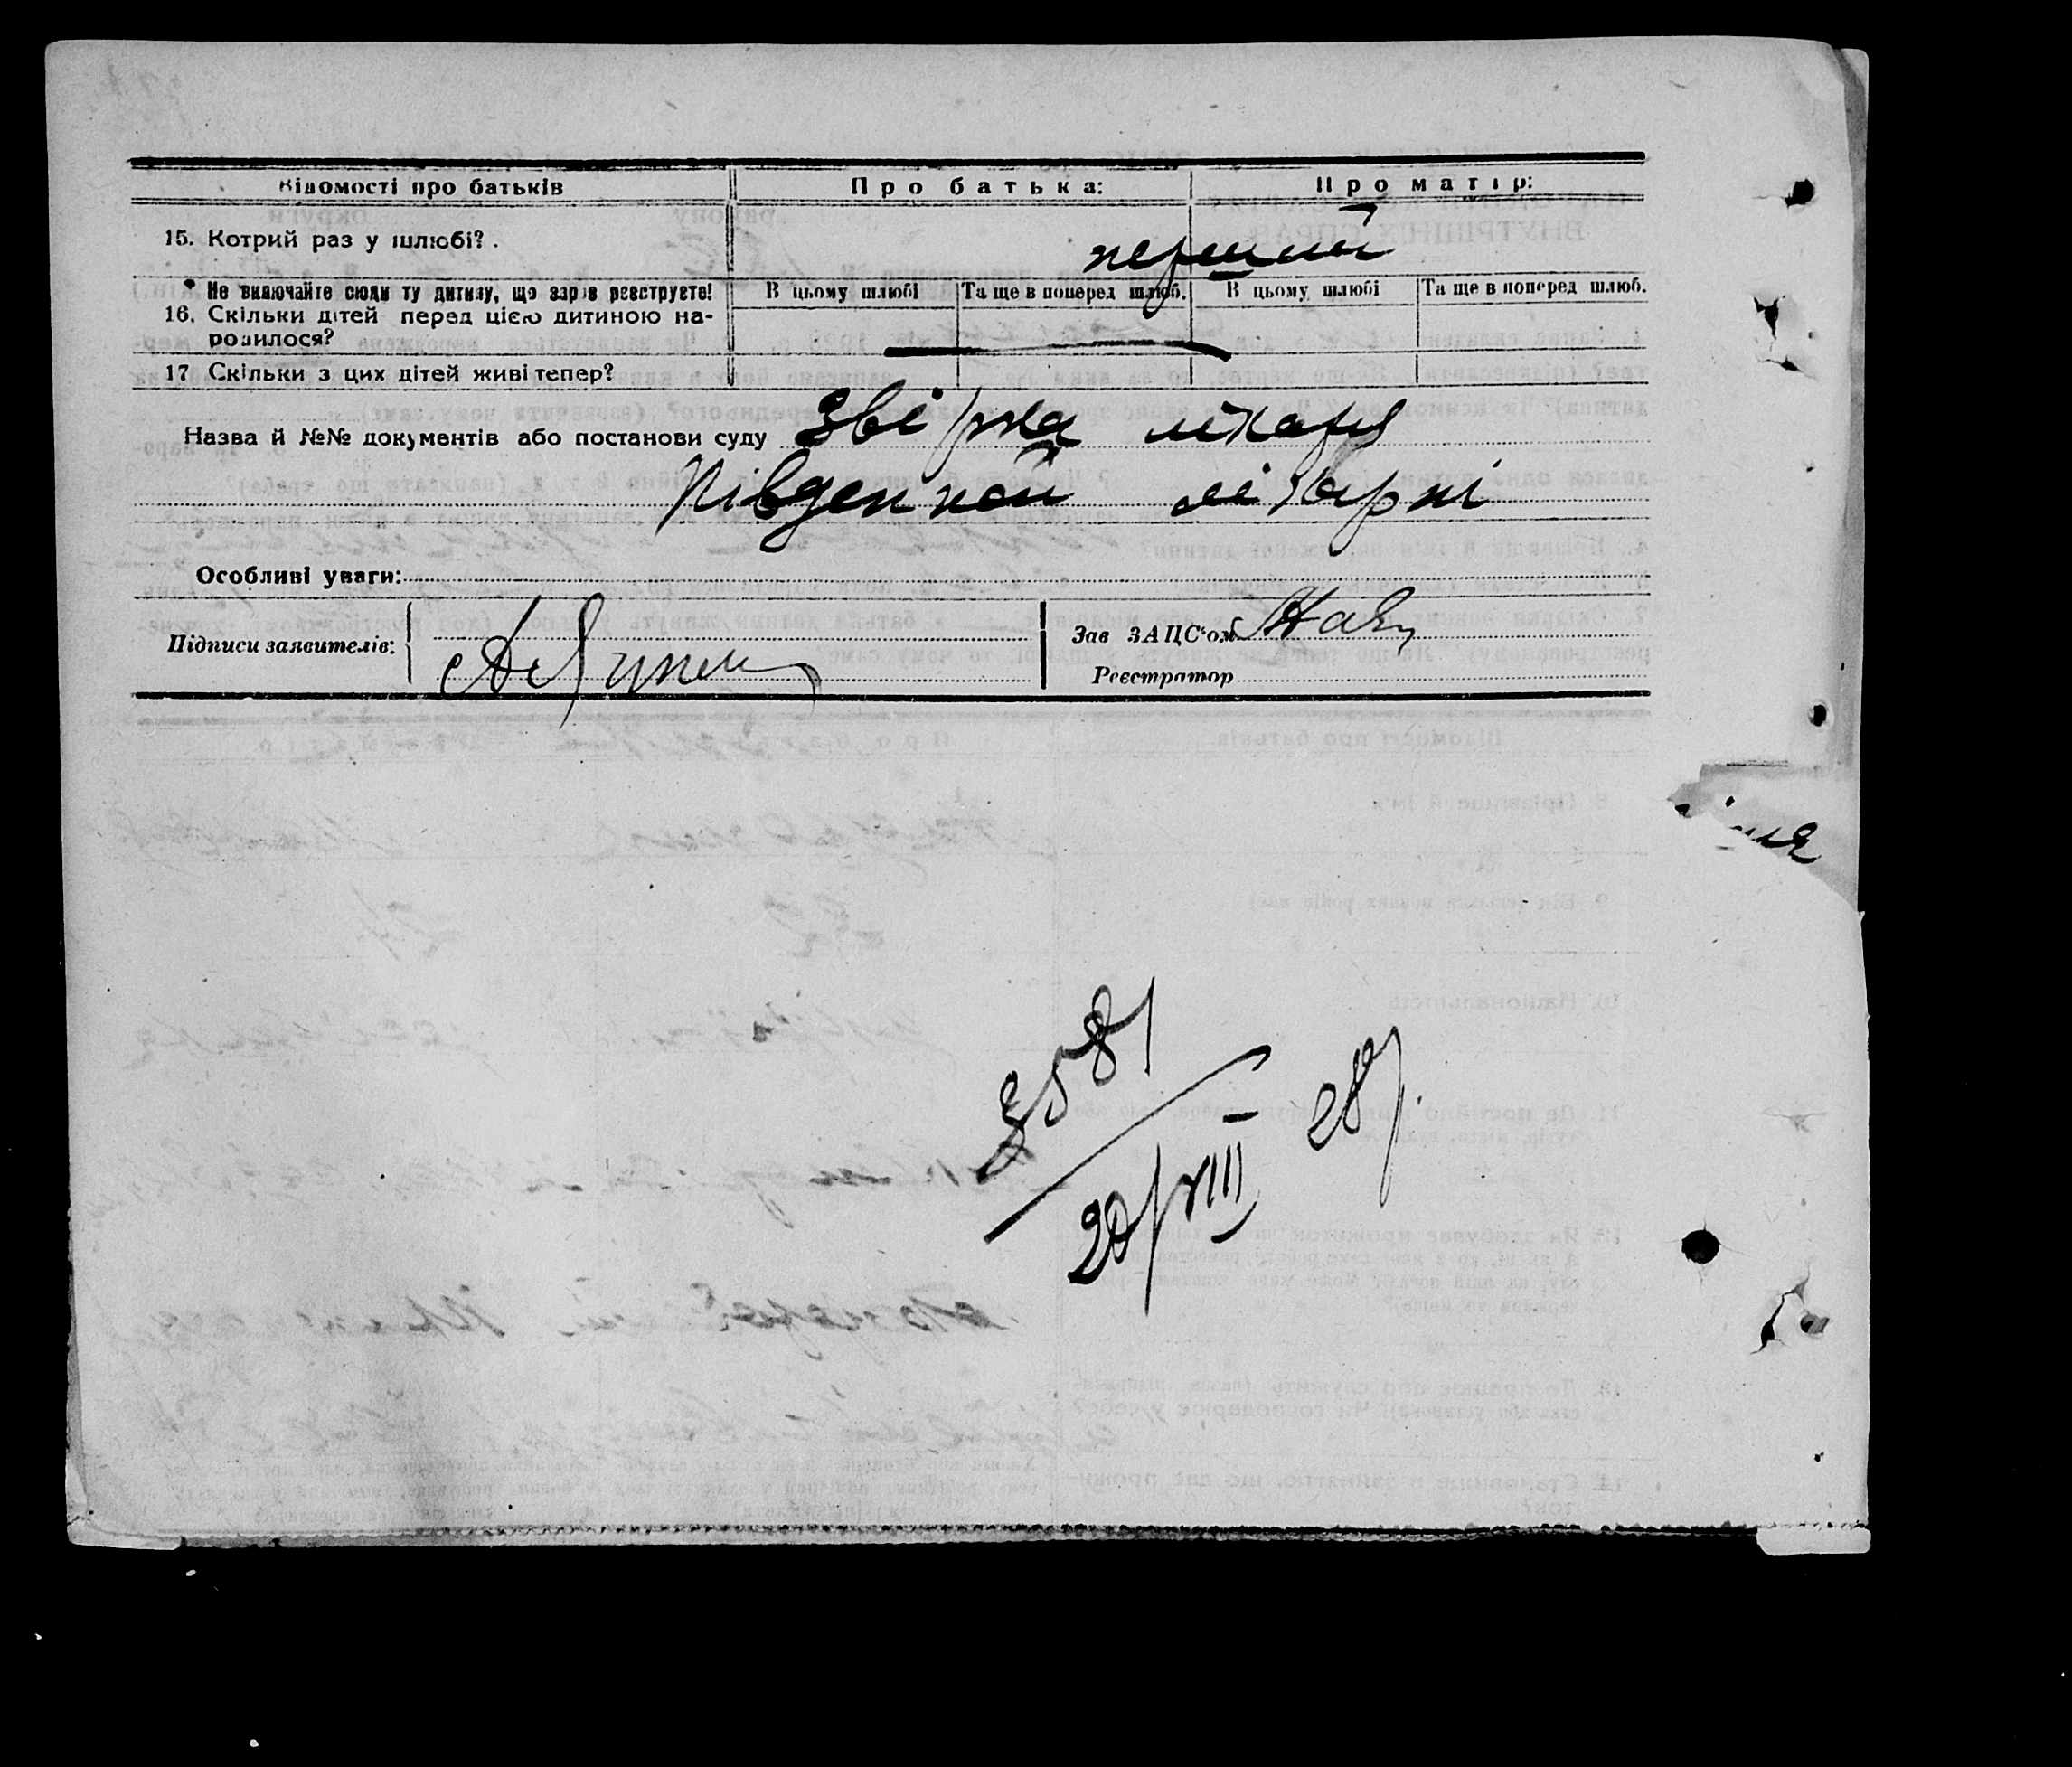 Відомості про батьків Про батька: Про матір:
15. Котрий раз у шлюбі? . перший
* Не включайте сюди ту дитину, що зараз реєструєте! В цьому шлюбі Та ще в поперед шлюб. В цьому шлюбі Та ще в поперед шлюб.
16. Скільки дітей перед цією дитиною на-
родилося?
17 Скільки з цих дітей живі тепер?
Назва й №№ документів або постанови суду Звірка лікаря
Південной лікарні
Особливі уваги:
Підписи заявителів: Зав ЗАЦС'ом
Реєстратор
3581
20/VIII 28р.